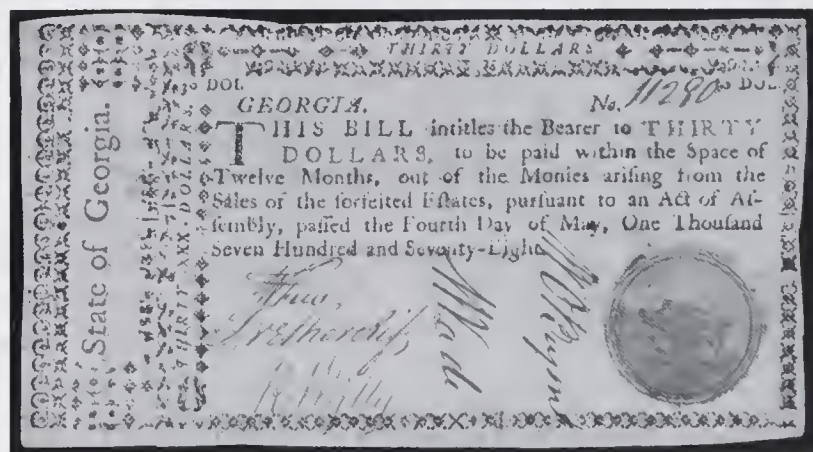 State of Georgia.
THIRTY XXX DOLLARS.
THIRTY DOLLARS
DOL.
DOL
GEORGIA. No. 11280
THIS BILL intitles the Bearer to THIRTY
DOLLARS, to be paid within the Space of
Twelve Months, out of the Monies arising from the
Sales of the forfeited Estates, pursuant to an Act of As-
sembly, passed the Fourth Day of May, One Thousand
Seven Hundred and Seventy-Eight.
Wade